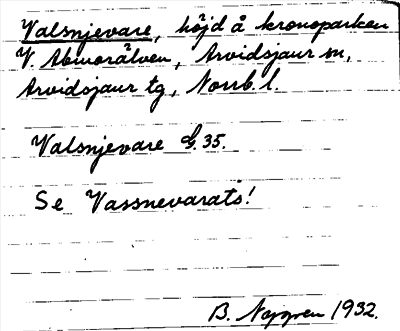 Valsnjevare, höjd å kronoparken
V. Abmorälven, Arvidsjaur sn,
Arvidsjaur tg, Norrb. l.
Valsnjevare G. 35.
Se Vassnevarats!
B. Nygren 1932.